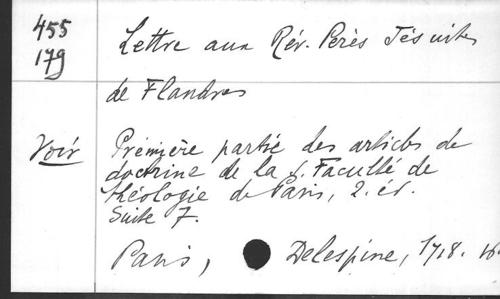 455
179
Lettre aux Rév. Perès Jésuites
de Flandres
Voir
Prémière partie des articles de
doctrine de la s. Faculté de
théologie de Paris, 2. éd.
Suite 7.
Paris, Delespine, 1718. 16.